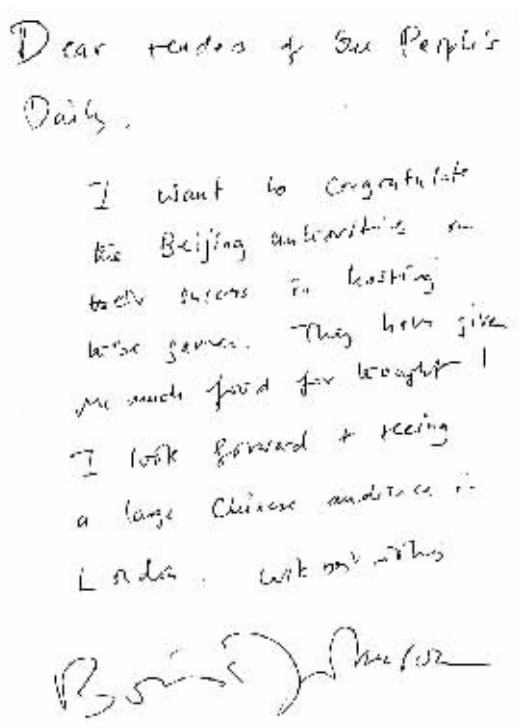 Dear readers of the People's
Daily.
I want to congratulate
the Beijing authorities on
their success in hosting
these games. They have given
me much food for thought!
I look forward to seeing
a large Chinese audience in
London. With best wishes
Boris Johnson